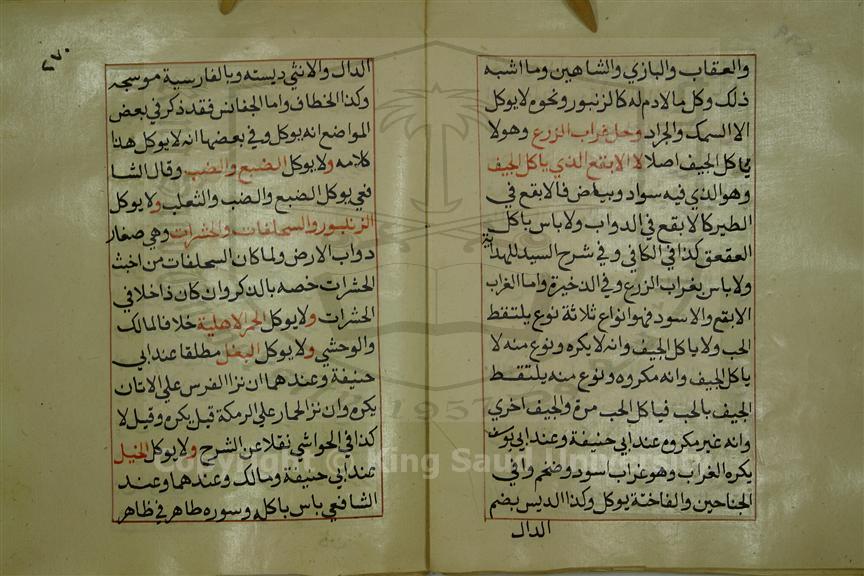 والعقاب والبازي والشاهين وما اشبه
ذلك وكل ما لادم له كالزنبور ونحوه لا يوكل
الا السمك والجراد وحل غراب الزرع وهو لا
ياكل الجيف اصلا لا الابقع الذي ياكل الجيف
وهو الذي فيه سواد وبياض فالابقع في
الطير كالابقع في الدواب ولا باس باكل
العقعق كذا في الكافي وفي شرح السيد للهداية
ولا باس بغراب الزرع وفي الذخيرة واما الغراب
الابقع والاسود فهو انواع ثلاثة نوع يلتقط
الحب ولا ياكل الجيف وانه لا يكره ونوع منه لا
ياكل الجيف وانه مكروه ونوع منه يلتقط
الجيف بالحب فياكل الحب مرة والجيف اخري
وانه غير مكروه عند ابي حنيفة وعند ابي يوسف
يكره الغراب وهو غراب اسود وضخم وافي
الجناحين والفاختة يوكل وكذا الدبس بضم
الدال
٢٧٠
الدال والانثي دبسته وبالفارسية موسجه
وكذا الخطاف واما الجفانس فقد ذكر في بعض
المواضع انه يوكل وفي بعضها انه لا يوكل هذا
كلامه ولا يوكل الضبع والضب وقال الشا
فعي يوكل الضبع والضب والثعلب ولا يوكل
الزنبور والسحلفات والحشرات وهي صغار
دواب الارض ولما كان السحلفات من اخبث
الحشرات خصه بالذكر وان كان داخلا في
الحشرات ولا يوكل الحمر الاهلية خلافا لمالك
والوحشي ولا يوكل البغل مطلقا عند ابي
حنيفة وعندهما ان نزا الفرس علي الاتان
يكره وان نزا الحمار علي الرمكة قيل يكره وقيل لا
كذا في الحواشي نقلا عن الشرح ولا يوكل الخيل
عند ابي حنيفة ومالك وعندهما وعند
الشافعي باس باكله وسوره طاهر في ظاهر
Copyright © King Saud University
1957